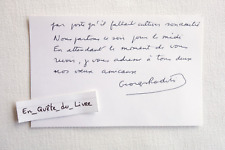 par poste qu'il fallait
Nous partons ce soir pour le midi
En attendant le moment de vous
revoir, je vous adresse à tous deux
nos vœux amicaux
En_Quête_du_Livre